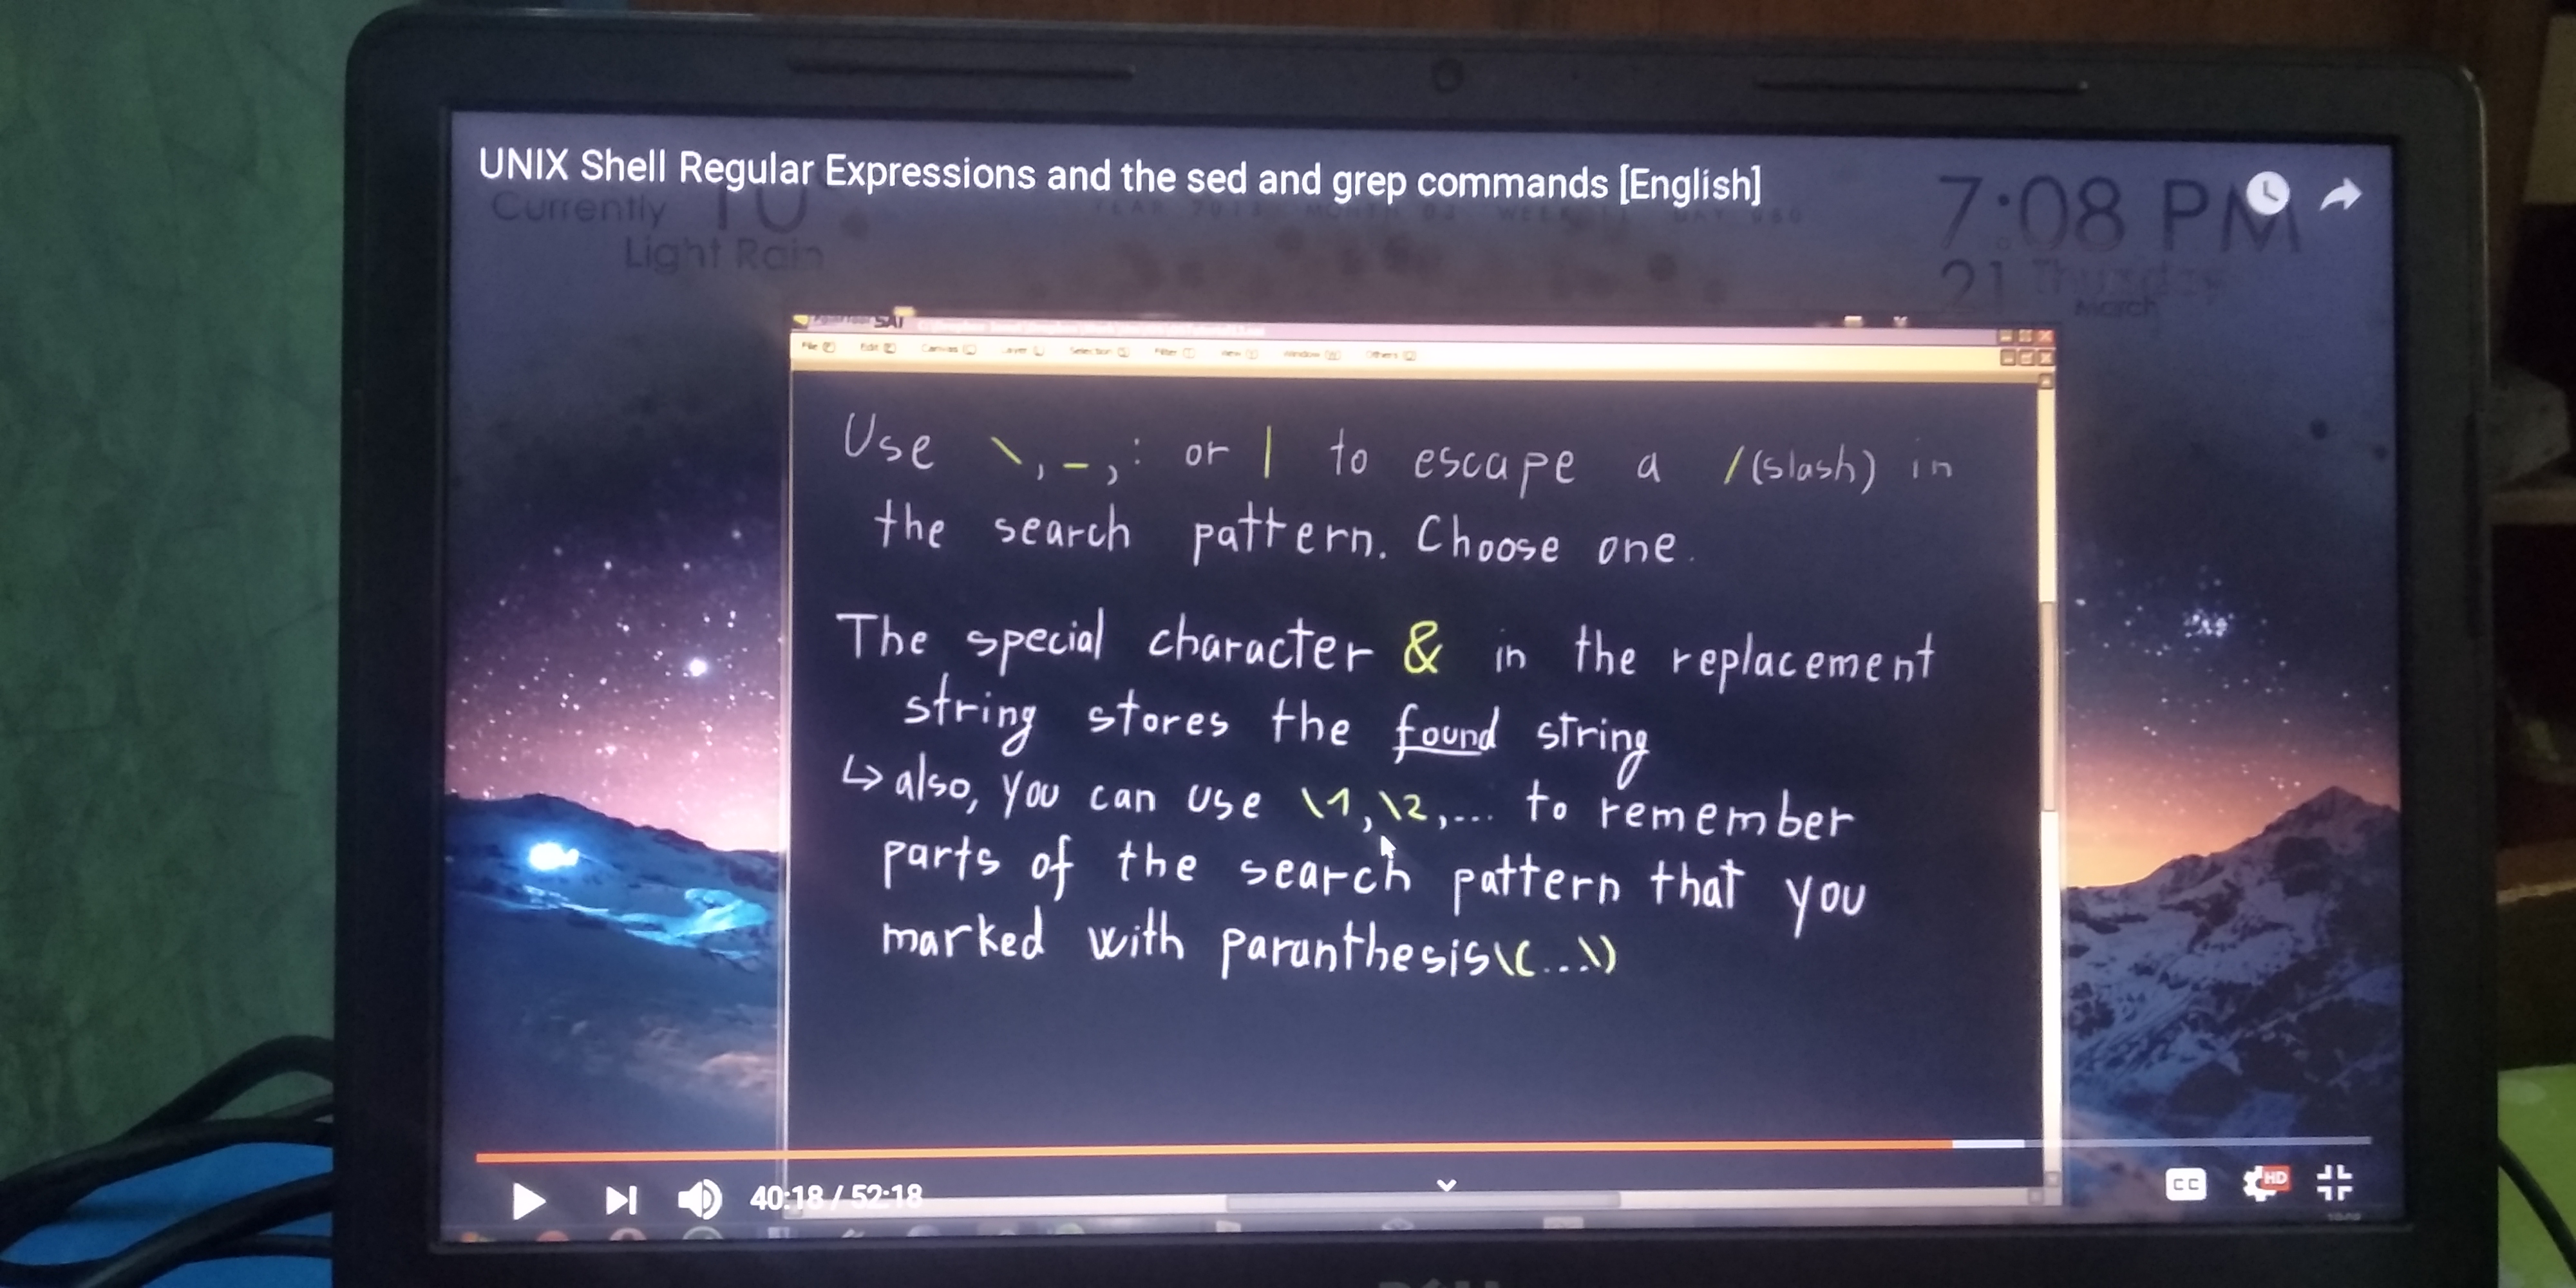 UNIX Shell Regular Expressions and the sed and grep commands [English]
Currently 10
Light Rain
7:08 PM
21 Thursday
March
SAI
Use \, _, : or | to escape a /(slash) in
the search pattern. Choose one.
The special character & in the replacement
string stores the found string
↳ also, you can use \1,\2,... to remember
parts of the search pattern that you
marked with paranthesis\(...\)
40:18 / 52:18
CC
HD